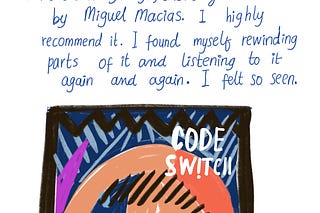 by Miguel Macias. I highly
recommend it. I found myself rewinding
parts of it and listening to it
again and again. I felt so seen.
CODE
SW!TCH